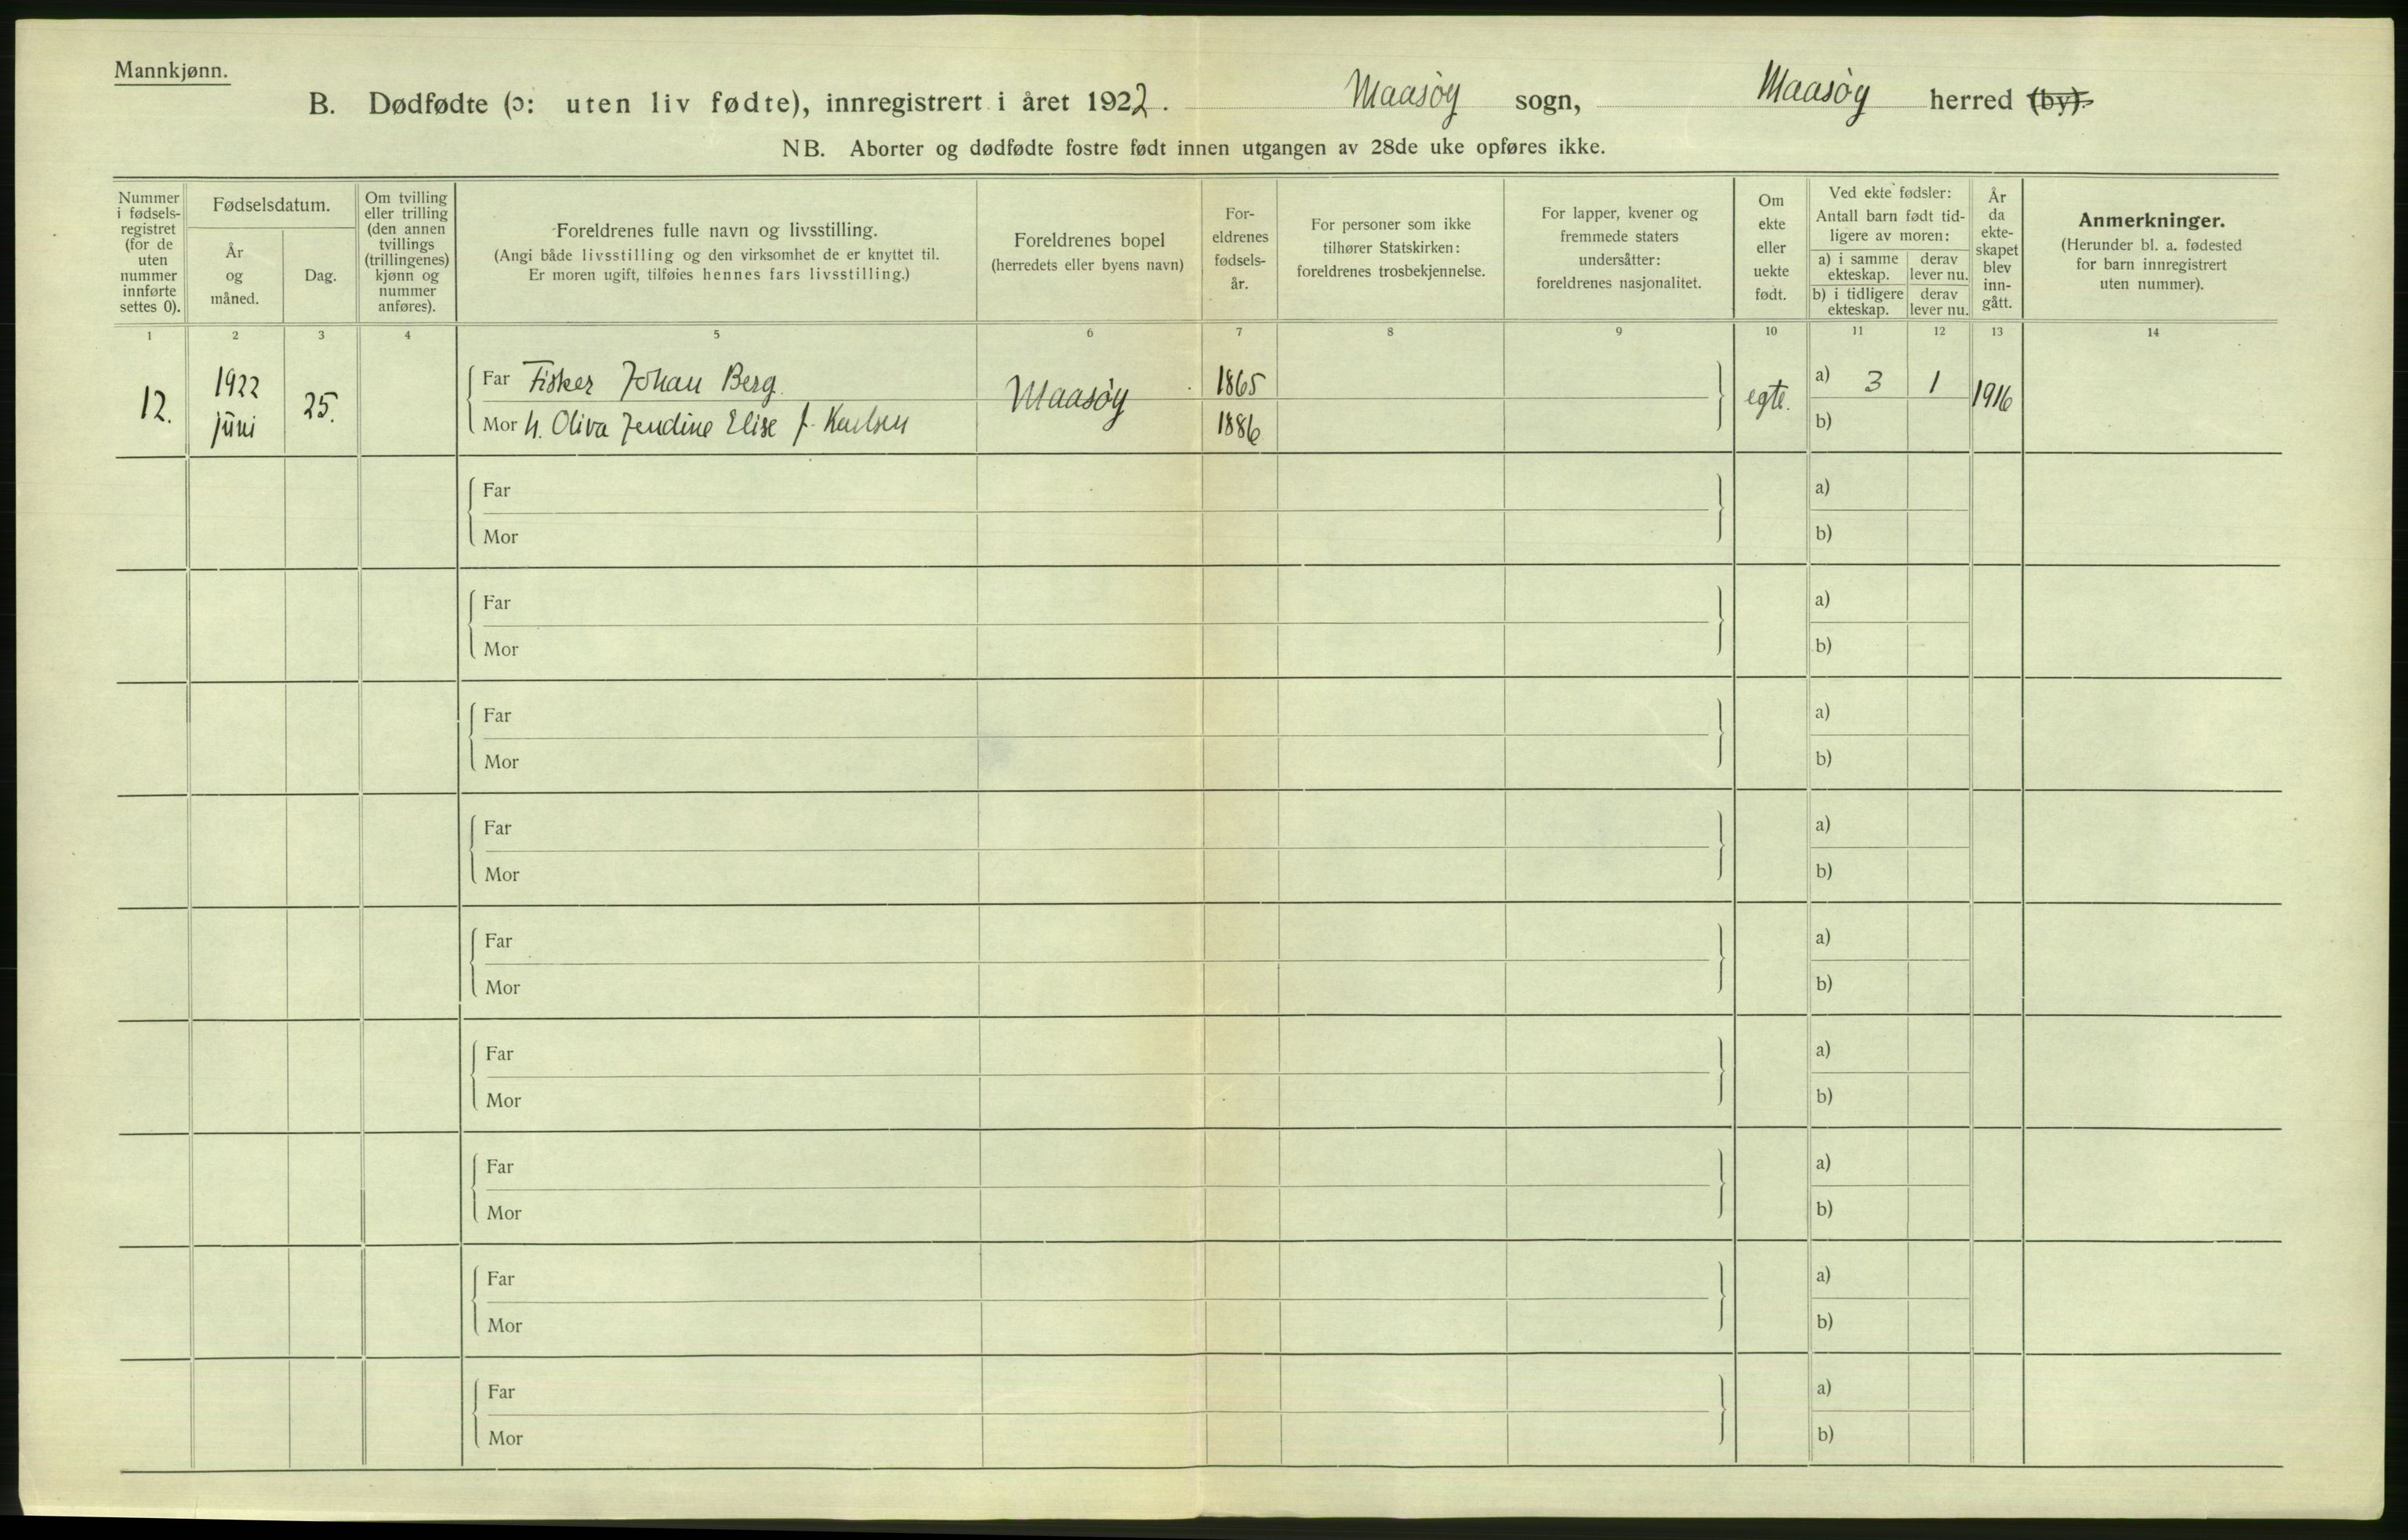 Mannkjønn.
B. Dødfødte (ɔ: uten liv fødte), innregistrert i året 1922. Maasöy sogn, Maasöy herred (by).
NB. Aborter og dødfødte fostre født innen utgangen av 28de uke opføres ikke.
Nummer
i fødsels-
registret
(for de
uten
nummer
innførte
settes 0).
Fødselsdatum.
År
og
måned.
Dag.
Om tvilling
eller trilling
(den annen
tvillings
(trillingenes)
kjønn og
nummer
anføres).
Foreldrenes fulle navn og livsstilling.
(Angi både livsstilling og den virksomhet de er knyttet til.
Er moren ugift, tilføies hennes fars livsstilling.)
Foreldrenes bopel
(herredets eller byens navn)
For-
eldrenes
fødsels-
år.
For personer som ikke
tilhører Statskirken:
foreldrenes trosbekjennelse.
For lapper, kvener og
fremmede staters
undersåtter:
foreldrenes nasjonalitet.
Om
ekte
eller
uekte
født.
Ved ekte fødsler:
Antall barn født tid-
ligere av moren:
a) i samme
ekteskap.
derav
lever nu.
b) i tidligere
ekteskap.
derav
lever nu.
År
da
ekte-
skapet
blev
inn-
gått.
Anmerkninger.
(Herunder bl. a. fødested
for barn innregistrert
uten nummer).
1 2 3 4 5 6 7 8 9 10 11 12 13 14
12. 1922 juni 25.
Far Fisker Johan Berg
Mor h. Oliva Jendine Elise f. Karlsen
Maasöy
1865
1886
egte.
a) 3 1
b)
1916
Far a)
Mor b)
Far a)
Mor b)
Far a)
Mor b)
Far a)
Mor b)
Far a)
Mor b)
Far a)
Mor b)
Far a)
Mor b)
Far a)
Mor b)
Far a)
Mor b)